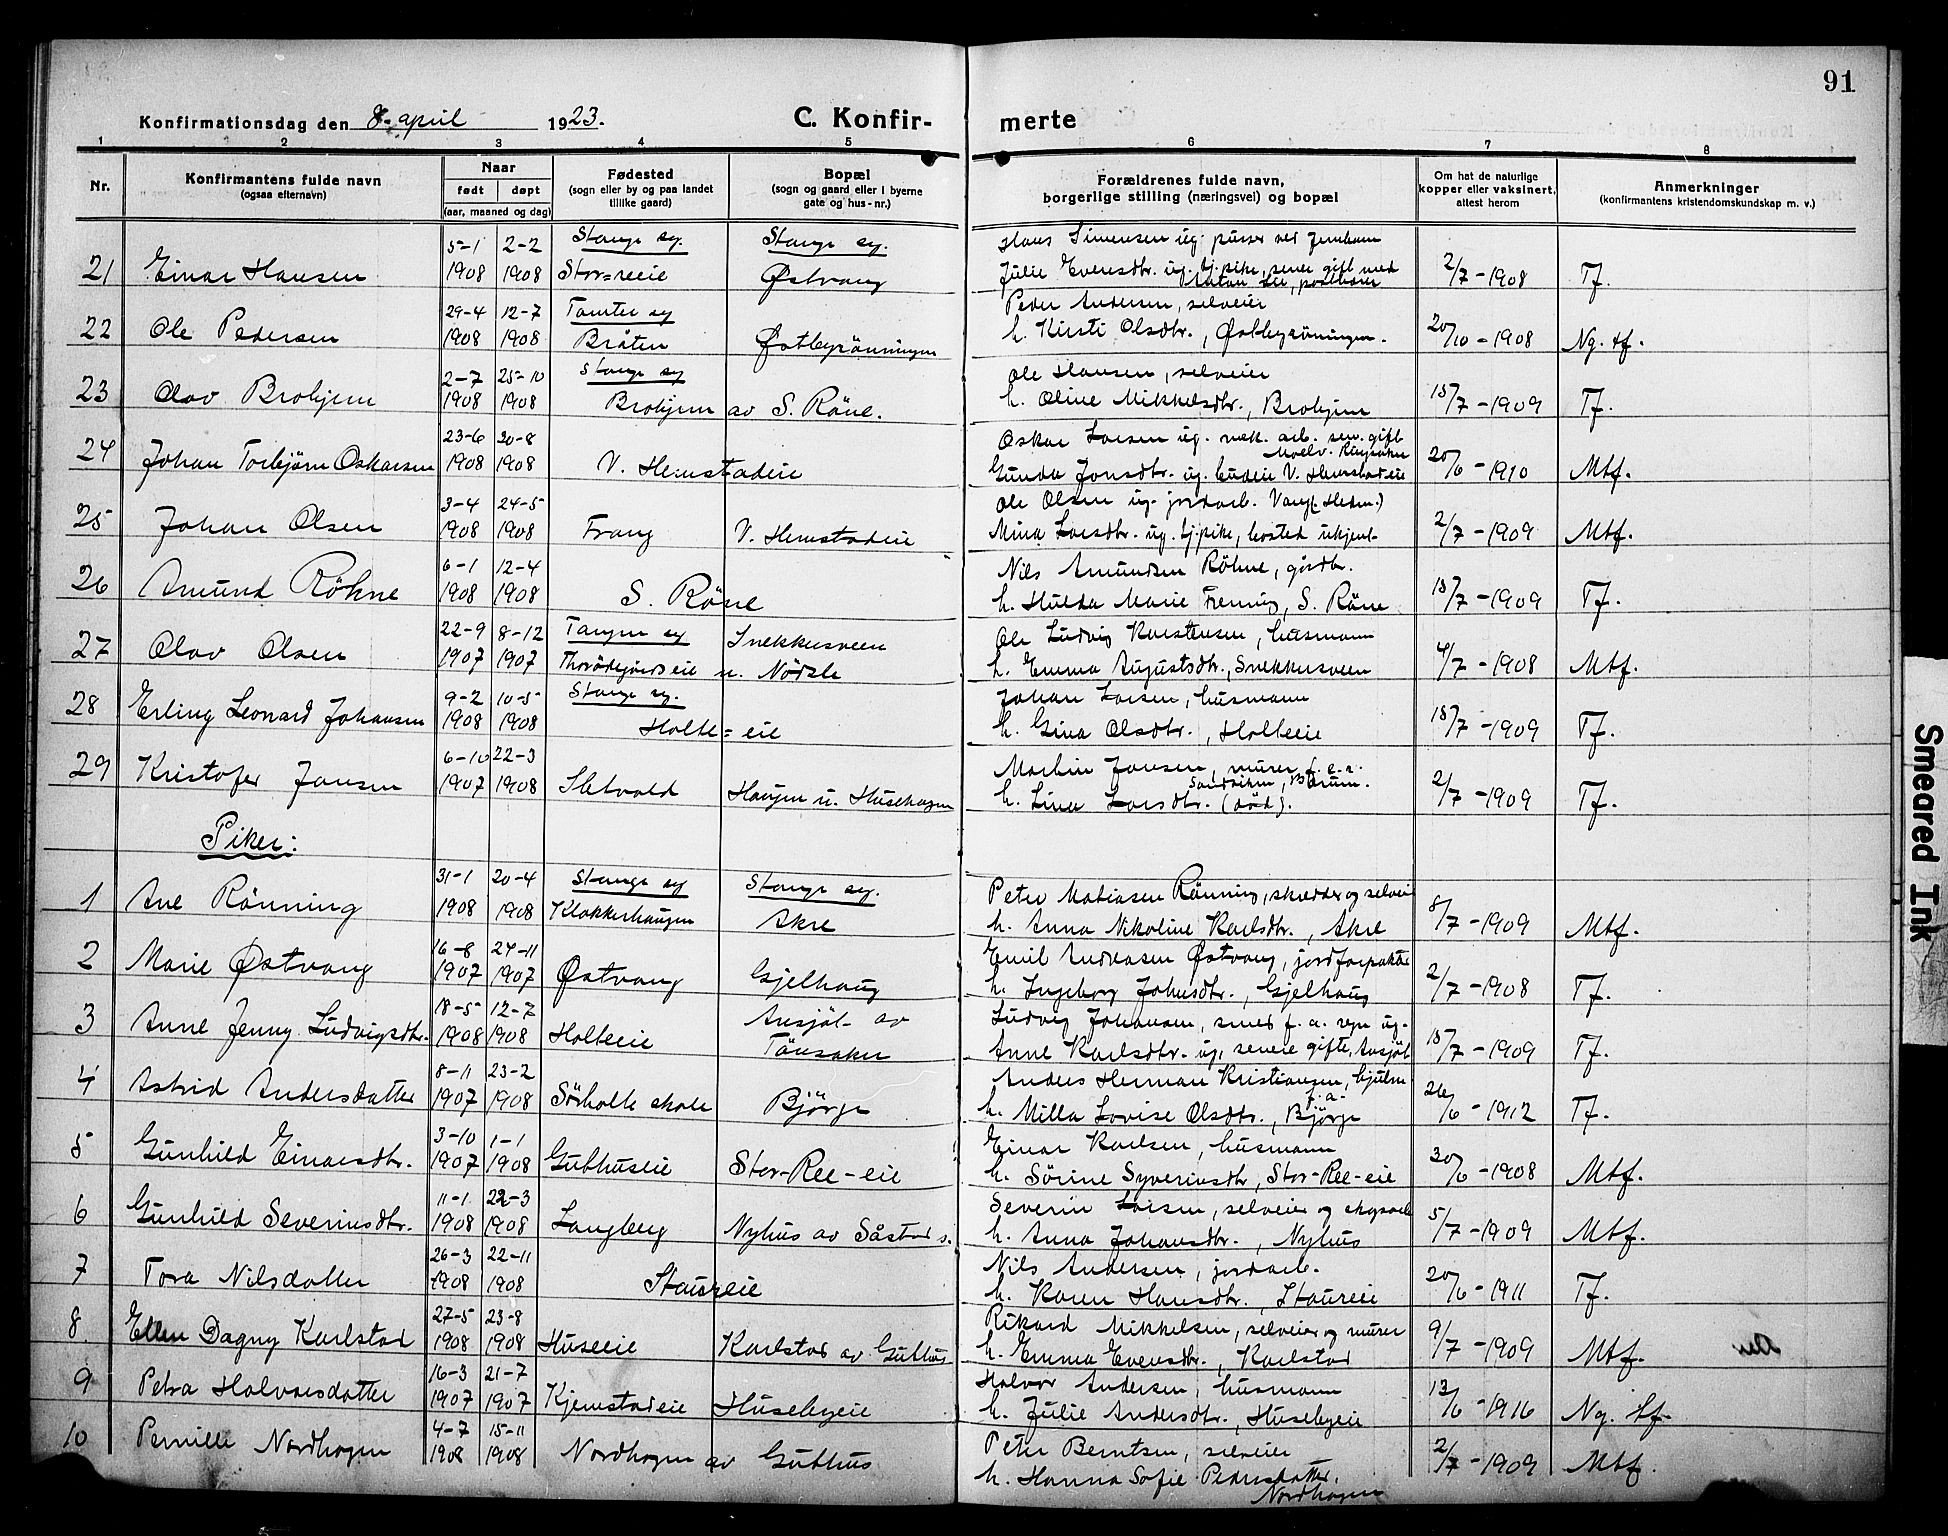 91
Konfirmationsdag den 8. april 1923.
C. Konfirmerte
1 2 3 4 5 6 7 8
Nr.
Konfirmantens fulde navn
(ogsaa efternavn)
Naar
født døpt
(aar, maaned og dag)
Fødested
(sogn eller by og paa landet
tillike gaard)
Bopæl
(sogn og gaard eller i byerne
gate og hus-nr.)
Forældrenes fulde navn,
borgerlige stilling (næringsvei) og bopæl
Om hat de naturlige
kopper eller vaksinert,
attest herom
Anmerkninger
(konfirmantens kristendomskundskap m. v.)
5-1 2-2 Stange sg. Stange sg. Hans Simensen ug. pusser ved Jernbanen
21 Einar Hansen 1908 1908 Stor-reeie Østvang Julie Evensdtr. ug. tj. pike, senere gift med 2/7-1908 Tf.
29-4 12-7 Peder Andersen, selveier
22 Ole Pedersen 1908 1908 Bråten Østbyrönningen h. Kirsti Olsdtr., Østbyröningen. 20/10-1908 Ng. tf.
2-7 25-10 Stange sg Ole Hansen, selveier
23 Olav Brohjem 1908 1908 Brohjem av S. Röne. h. Oline Mikkelsdtr., Brohjem 15/7-1909 Tf.
23-6 20-8 Oskar Larsen ug. mek. arb. sen. gift
Moelv. Ringsaker
24 Johan Torbjørn Oskarsen 1908 1908 V. Hemstadeie Gunda Jonsdtr. ug. budeie V. Hemstadeie 20/6-1910 Mtf.
3-4 24-5 Ole Olsen ug. jordarb. Vang (Hedm.)
25 Johan Olsen 1908 1908 Frang V. Hemstadeie Mina Larsdtr. ug. tj.pike, bosted ukjent- 2/7-1909 Mtf.
6-1 12-4 Nils Amundsen Röhne, gårdbr.
26 Amund Röhne 1908 1908 S. Röne h. Hulda Marie Frenning, S. Röne 15/7-1909 Tf.
22-9 8-12 Tangen sg Snekkersveen Ole Ludvig Karstensen, husmann
27 Olav Olsen 1907 1907 u. Nödsle h. Emma Augustsdtr., Snekkersveen 4/7-1908 Mtf.
9-2 10-5 Stange sg. Johan Larsen, husmann
28 Erling Leonard Johansen 1908 1908 Holte=eie h. Gina Olsdtr., Holteeie 15/7-1909 Tf.
6-10 22-3 Martin Jansen, murer f.e.r.
Sandviken, Bärum.
29 Kristofer Jansen 1907 1908 Sletvold Haugen u. Husehagen h. Lina Larsdtr. (död). 2/7-1909 Tf.
Piker:
31-1 20-4 Stange sg Stange sg. Peter Matiasen Rönning, skredder og selveier
1 Ane Rönning 1908 1908 Klokkerhaugen Akre h. Anna Nikoline Karlsdtr., Akre 8/7-1909 Mtf.
16-8 24-11 Emil Andreasen Østvang, jordforpakter
2 Marie Østvang 1907 1907 Østvang Gjelhaug h. Ingeborg Johnsdtr., Gjelhaug 2/7-1908 Tf.
18-5 12-7 Ansjöl- av Ludvig Johansen, smed
3 Anne Jenny Ludvigsdtr. 1908 1908 Holteeie Tönsaker Anne Karlsdtr. ug, senere gifte, Ansjöl 15/7-1909 Tf.
8-11 23-2 Anders Herman Kristiansen, hjulm
f.a.
4 Astrid Andersdatter 1907 1908 Sörholte skole Björge h. Milla Lovise Olsdtr., Björge 26/6-1912 Tf.
3-10 1-1 Einar Karlsen, husmann
5 Gunhild Einarsdtr. 1907 1908 Guthuseie Stor-Ree-eie h. Sörine Syverinsdtr, Stor-Ree-eie 30/6-1908 Mtf.
11-1 22-3 Severin Larsen, selveier og skogsarb
6 Gunhild Severinsdtr. 1908 1908 Langberg Nyhus av Såstad s. h. Anna Johansdtr., Nyhus 5/7-1909 Mtf.
26-3 22-11 Nils Andersen, jordarb.
7 Tora Nilsdatter 1908 1908 Staureie h. Karen Hansdtr., Staureie 20/6-1911 Tf.
27-5 23-8 Rikard Mikkelsen, selveier og murer
8 Ellen Dagny Karlstad 1908 1908 Huseeie Karlstad av Guthus h. Emma Evensdtr., Karlstad 9/7-1909 Mtf.
16-3 21-7 Halvor Andersen, husmann
9 Petra Halvorsdatter 1907 1907 Kjemstadeie Husebyeie h. Julie Andersdtr., Husebyeie 13/6-1916 Ng. tf.
4-7 15-11 Peter Berntsen, selveier
10 Pernille Nordhagen 1908 1908 Nordhagen av Guthus h. Hanna Sofie Pedersdatter. 2/7-1909 Mtf.
Nordhagen
Smeared Ink